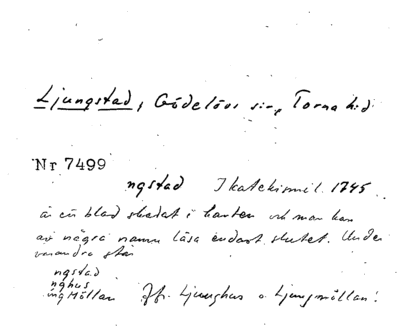 Ljungstad, Gödelövs sn, Torna hd
Nr 7499
ngstad I katekismil. 1745
är ett blad skadat i kanten och man kan
av några namn läsa endast slutet. Under
varandra står
ngstad
nghus
ngMöllan Jfr. Ljunghus o. Ljungmöllan!